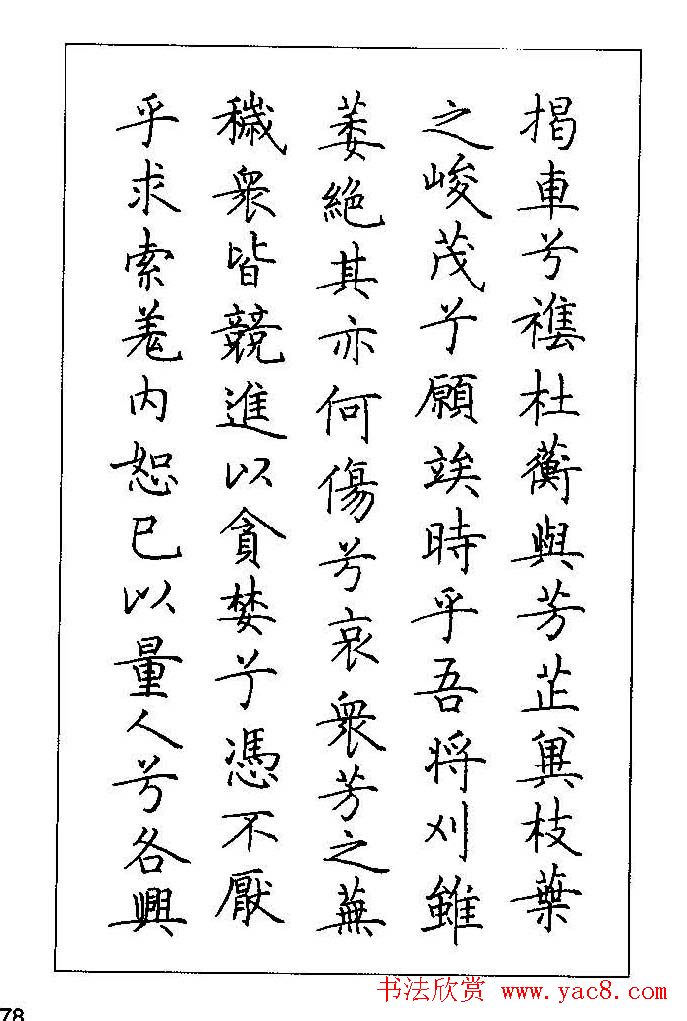 揭車兮襍杜蘅與芳芷兾枝葉
之峻茂兮願竢時乎吾將刈雖
萎絕其亦何傷兮哀衆芳之蕪
穢衆皆競進以貪婪兮憑不厭
乎求索羌内恕已以量人兮各興
书法欣赏 www.yac8.com
78